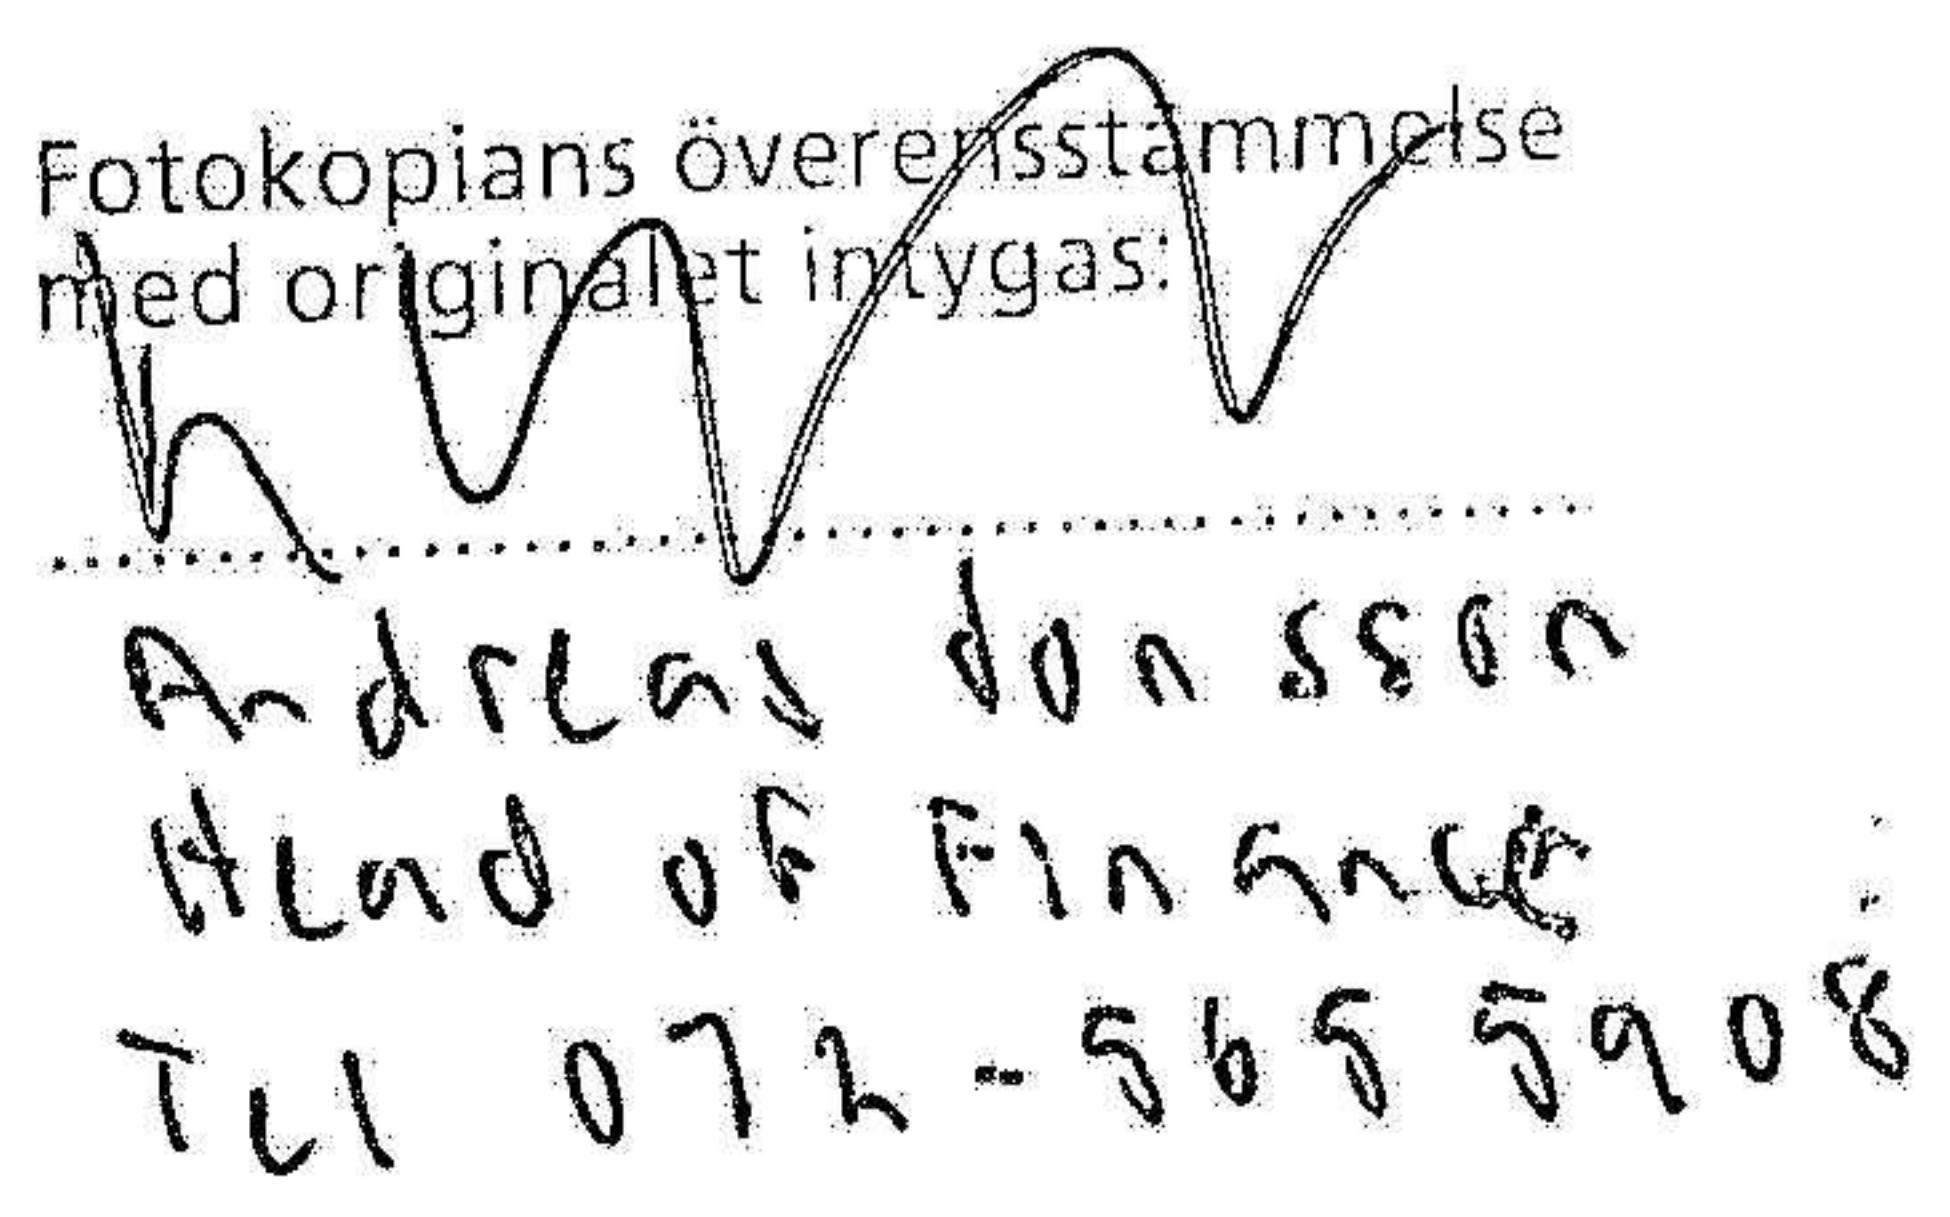 Fotokopians överensstämmelse
med originalet intygas:
Andreas Jonsson
Head of Finance
Tel 072-565 5908